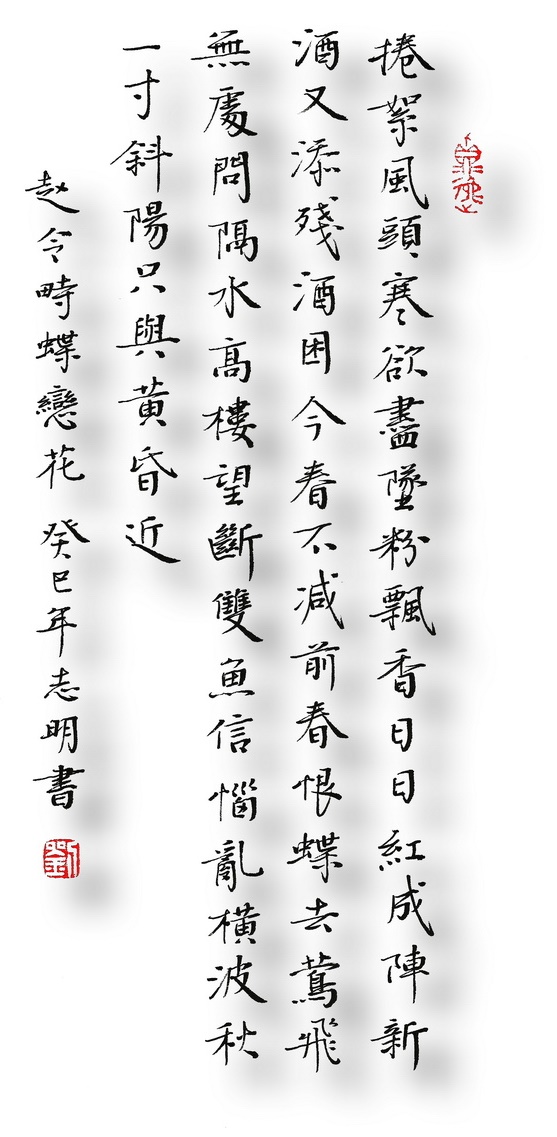 捲絮風頭寒欲盡墜粉飄香日日紅成陣新
酒又添殘酒困今春不減前春恨蝶去鶯飛
無處問隔水高樓望斷雙魚信惱亂橫波秋
一寸斜陽只與黃昏近
赵令畤蝶戀花 癸巳年志明書
劉